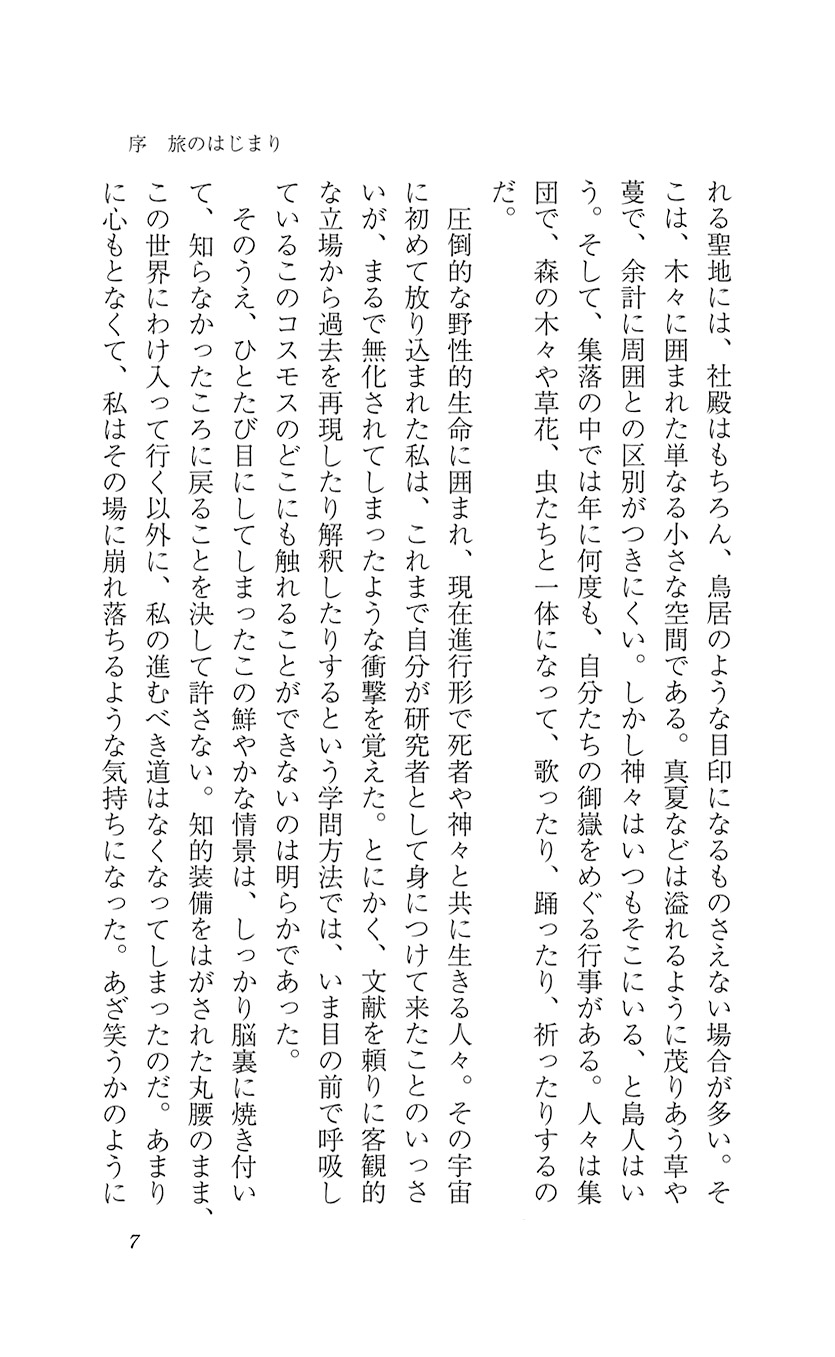 序　旅のはじまり
れる聖地には、社殿はもちろん、鳥居のような目印になるものさえない場合が多い。そ
こは、木々に囲まれた単なる小さな空間である。真夏などは溢れるように茂りあう草や
蔓で、余計に周囲との区別がつきにくい。しかし神々はいつもそこにいる、と島人はい
う。そして、集落の中では年に何度も、自分たちの御嶽をめぐる行事がある。人々は集
団で、森の木々や草花、虫たちと一体になって、歌ったり、踊ったり、祈ったりするの
だ。
　圧倒的な野性的生命に囲まれ、現在進行形で死者や神々と共に生きる人々。その宇宙
に初めて放り込まれた私は、これまで自分が研究者として身につけて来たことのいっさ
いが、まるで無化されてしまったような衝撃を覚えた。とにかく、文献を頼りに客観的
な立場から過去を再現したり解釈したりするという学問方法では、いま目の前で呼吸し
ているこのコスモスのどこにも触れることができないのは明らかであった。
　そのうえ、ひとたび目にしてしまったこの鮮やかな情景は、しっかり脳裏に焼き付い
て、知らなかったころに戻ることを決して許さない。知的装備をはがされた丸腰のまま、
この世界にわけ入って行く以外に、私の進むべき道はなくなってしまったのだ。あまり
に心もとなくて、私はその場に崩れ落ちるような気持ちになった。あざ笑うかのように
7